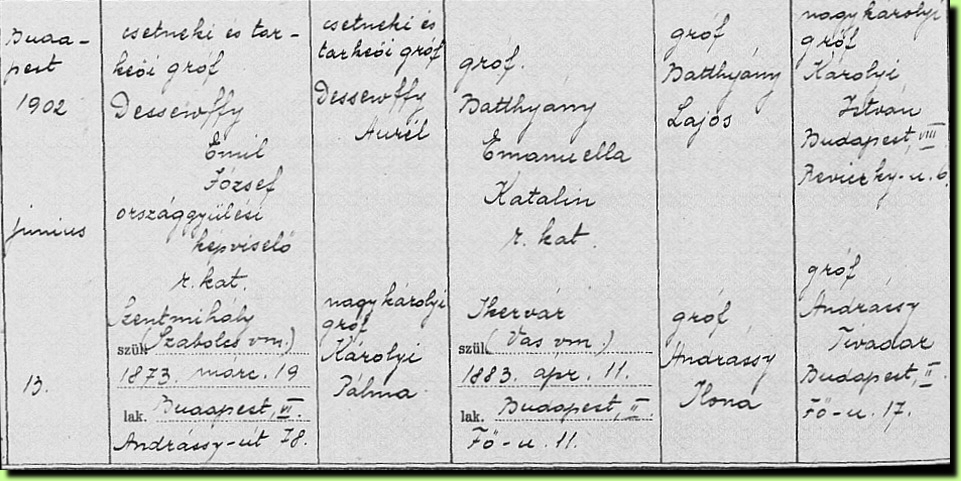 Buda-
pest
1902
junius
13.
csetneki és tar-
keői gróf
Dessewffy
Emil
József
országgyülési
képviselő
r. kat.
Szentmihály
szül. (Szabolcs vm.)
1873. márc. 19
lak. Budapest, VI.
Andrássy-út 78.
csetneki és
tarkeői gróf
Dessewffy
Aurél
nagykárolyi
gróf
Károlyi
Pálma
gróf.
Batthyány
Emanuella
Katalin
r. kat.
Ikervár
szül. (Vas vm.)
1883. apr. 11.
lak. Budapest, II.
Fő-u. 11.
gróf
Batthyány
Lajos
gróf
Andrássy
Ilona
nagykárolyi
gróf
Károlyi
István
Budapest, VIII
Reviczky-u. 6.
gróf
Andrássy
Tivadar
Budapest, II.
Fő-u. 17.